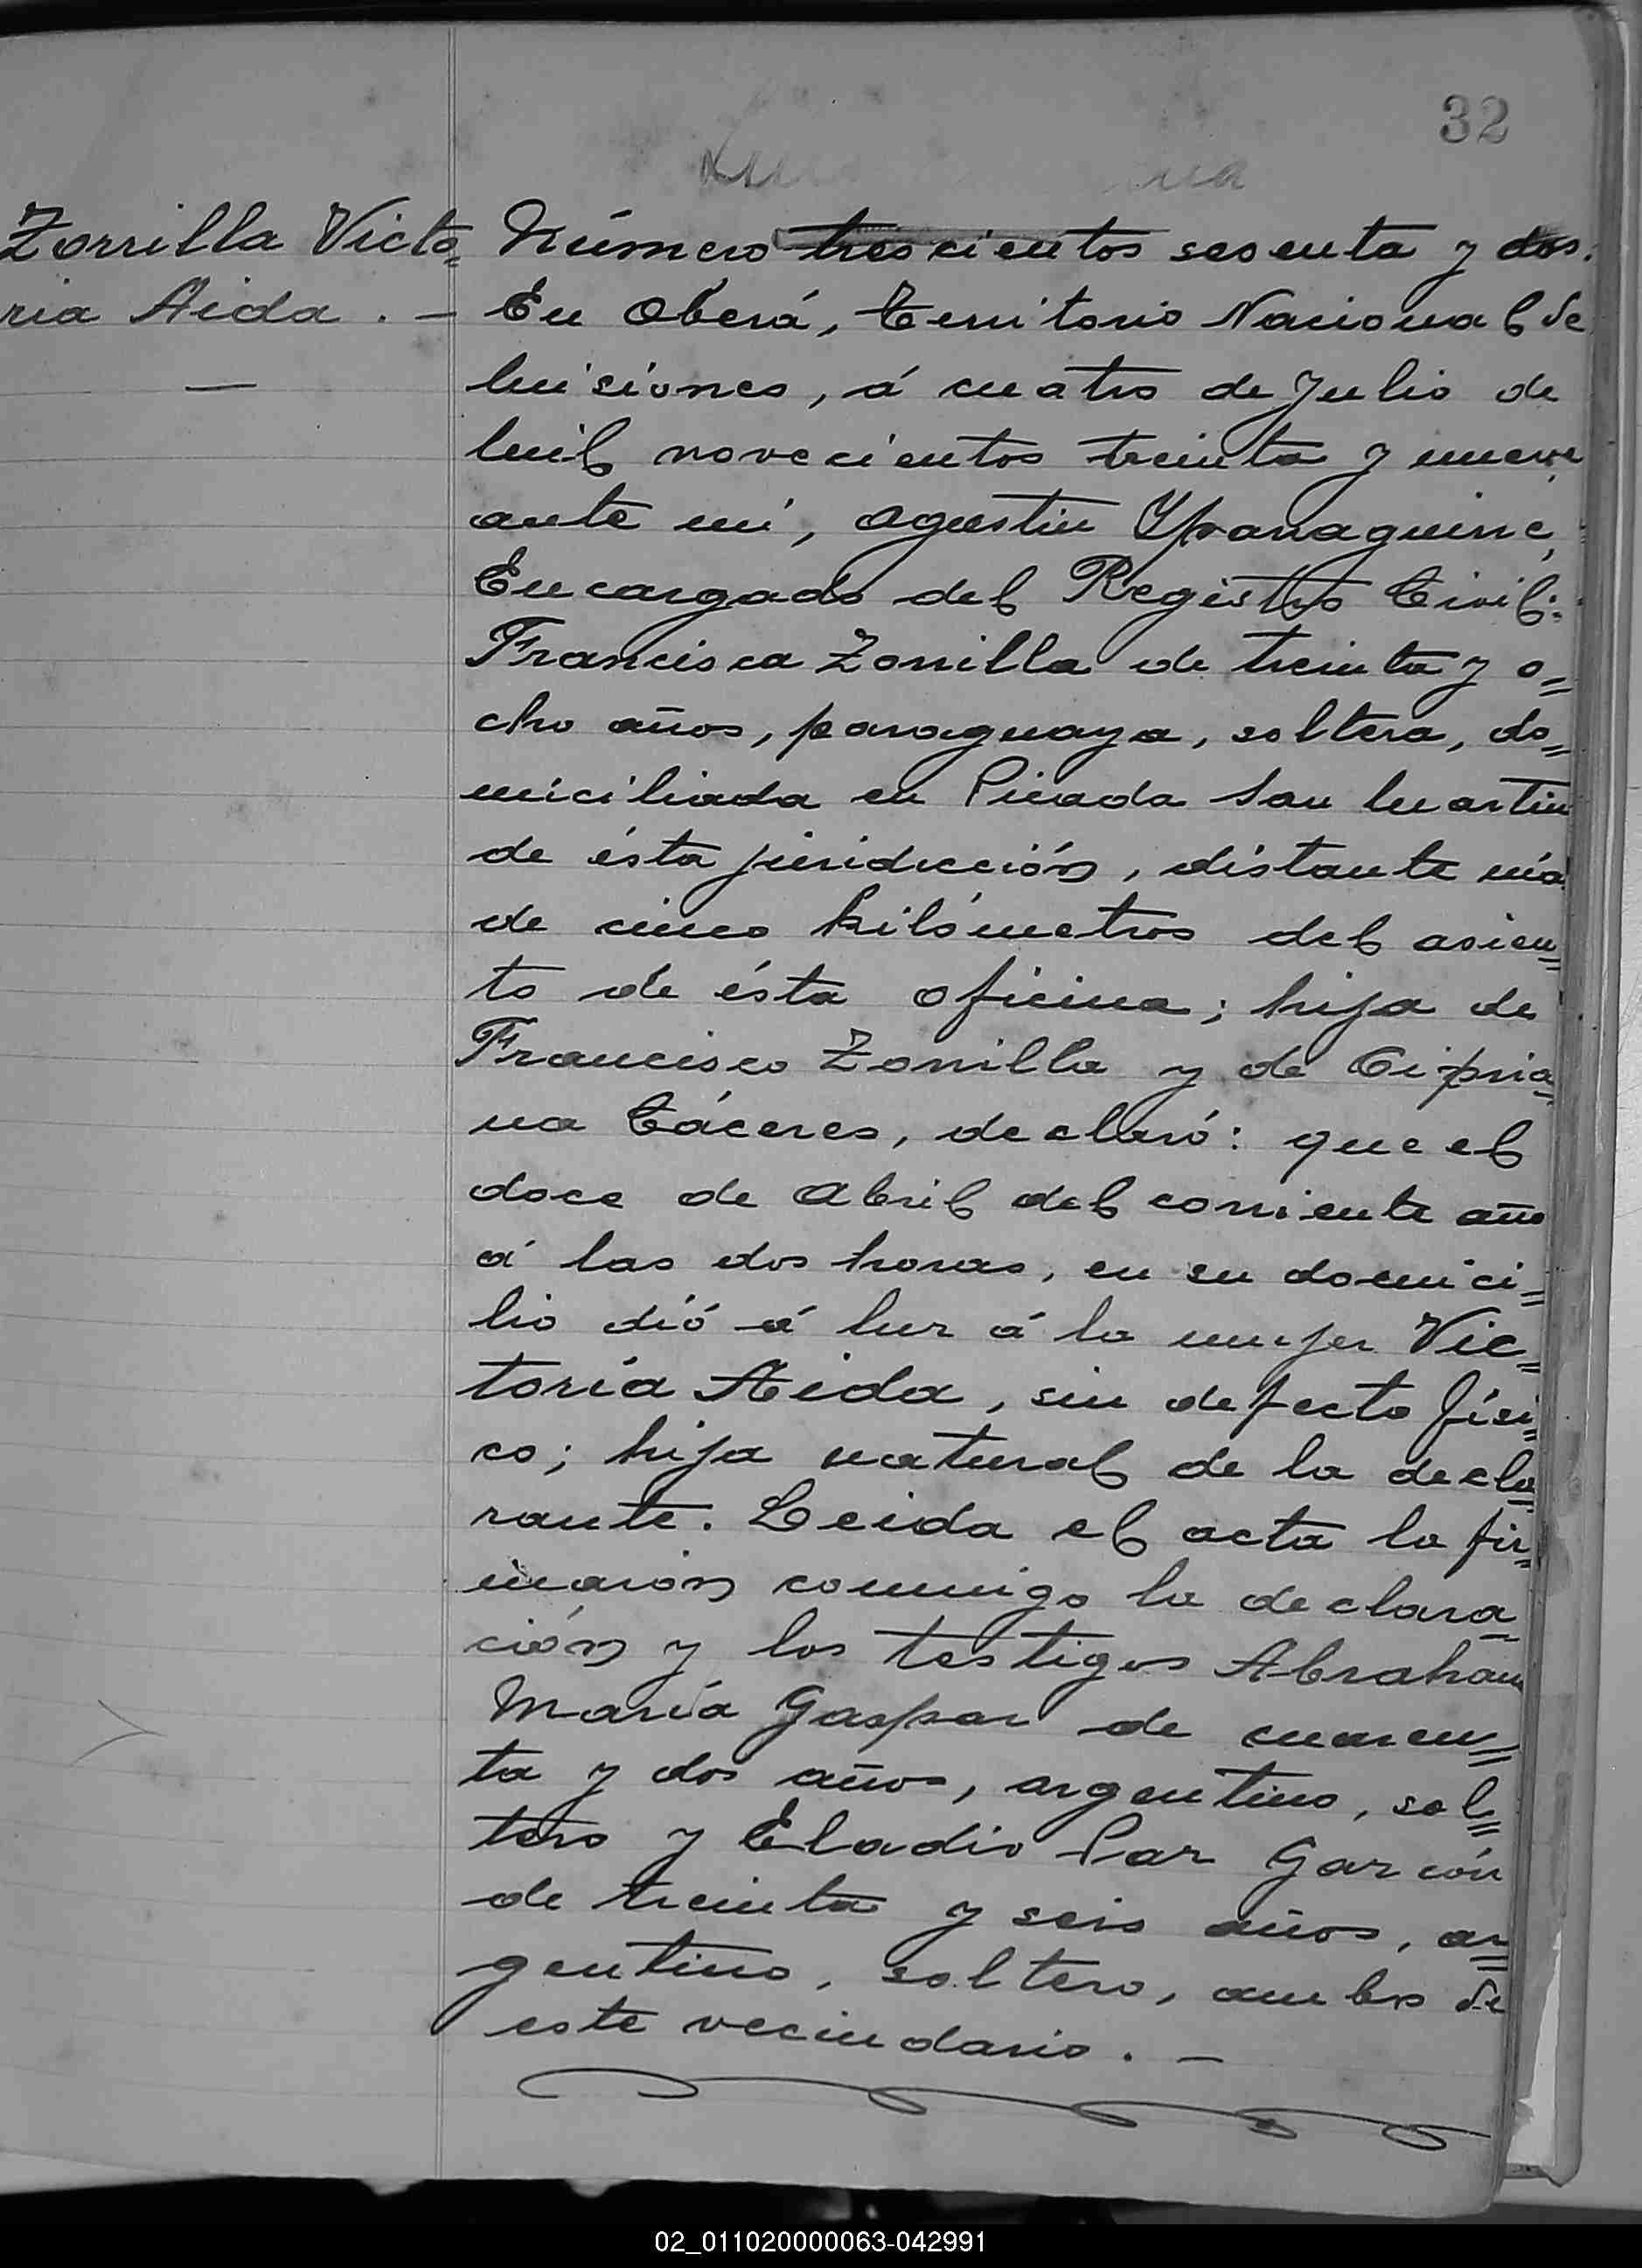 32
Zorrilla Victo=
ria Aida. —
Número trescientos sesenta y dos.
En Oberá, Territorio Nacional de
Misiones, á cuatro de Julio de
mil novecientos treinta y nueve,
ante mí, Agustin Yparaguirre,
Encargado del Registro Civil:
Francisca Zorrilla de treinta y o=
cho años, paraguaya, soltera, do=
miciliada en Picada San Martin
de ésta juridicción, distante más
de cinco kilómetros del asien=
to de ésta oficina; hija de
Francisco Zorrilla y de Cipria=
na Cáceres, declaró: que el
doce de Abril del corriente año
á las dos horas, en su domici=
lio dió á luz á la mujer Vic=
toria Aida, sin defecto físi=
co; hija natural de la decla=
rante. Leida el acta la fir=
marón conmigo la declara=
ción y los testigos Abraham
María Gaspar de cuaren=
ta y dos años, argentino, sol=
tero y Eladio Paz Garzón
de treinta y seis años, ar=
gentino, soltero, ambos de
este vecindario. —
02_011020000063-042991